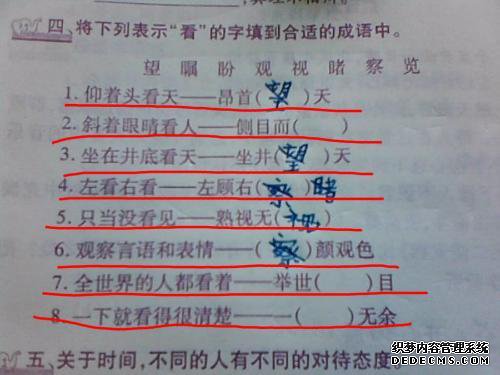 四、将下列表示“看”的字填到合适的成语中。
望 嘱 盼 观 视 睹 察 览
1. 仰着头看天——昂首(望)天
2. 斜着眼睛看人——侧目而( )
3. 坐在井底看天——坐井(望)天
4. 左看右看——左顾右(察)睹
5. 只当没看见——熟视无( )
6. 观察言语和表情——(察)颜观色
7. 全世界的人都看着——举世( )目
8. 一下就看得很清楚——一( )无余
五、关于时间，不同的人有不同的对待态度
电脑软硬件教程网
www.computer26.com